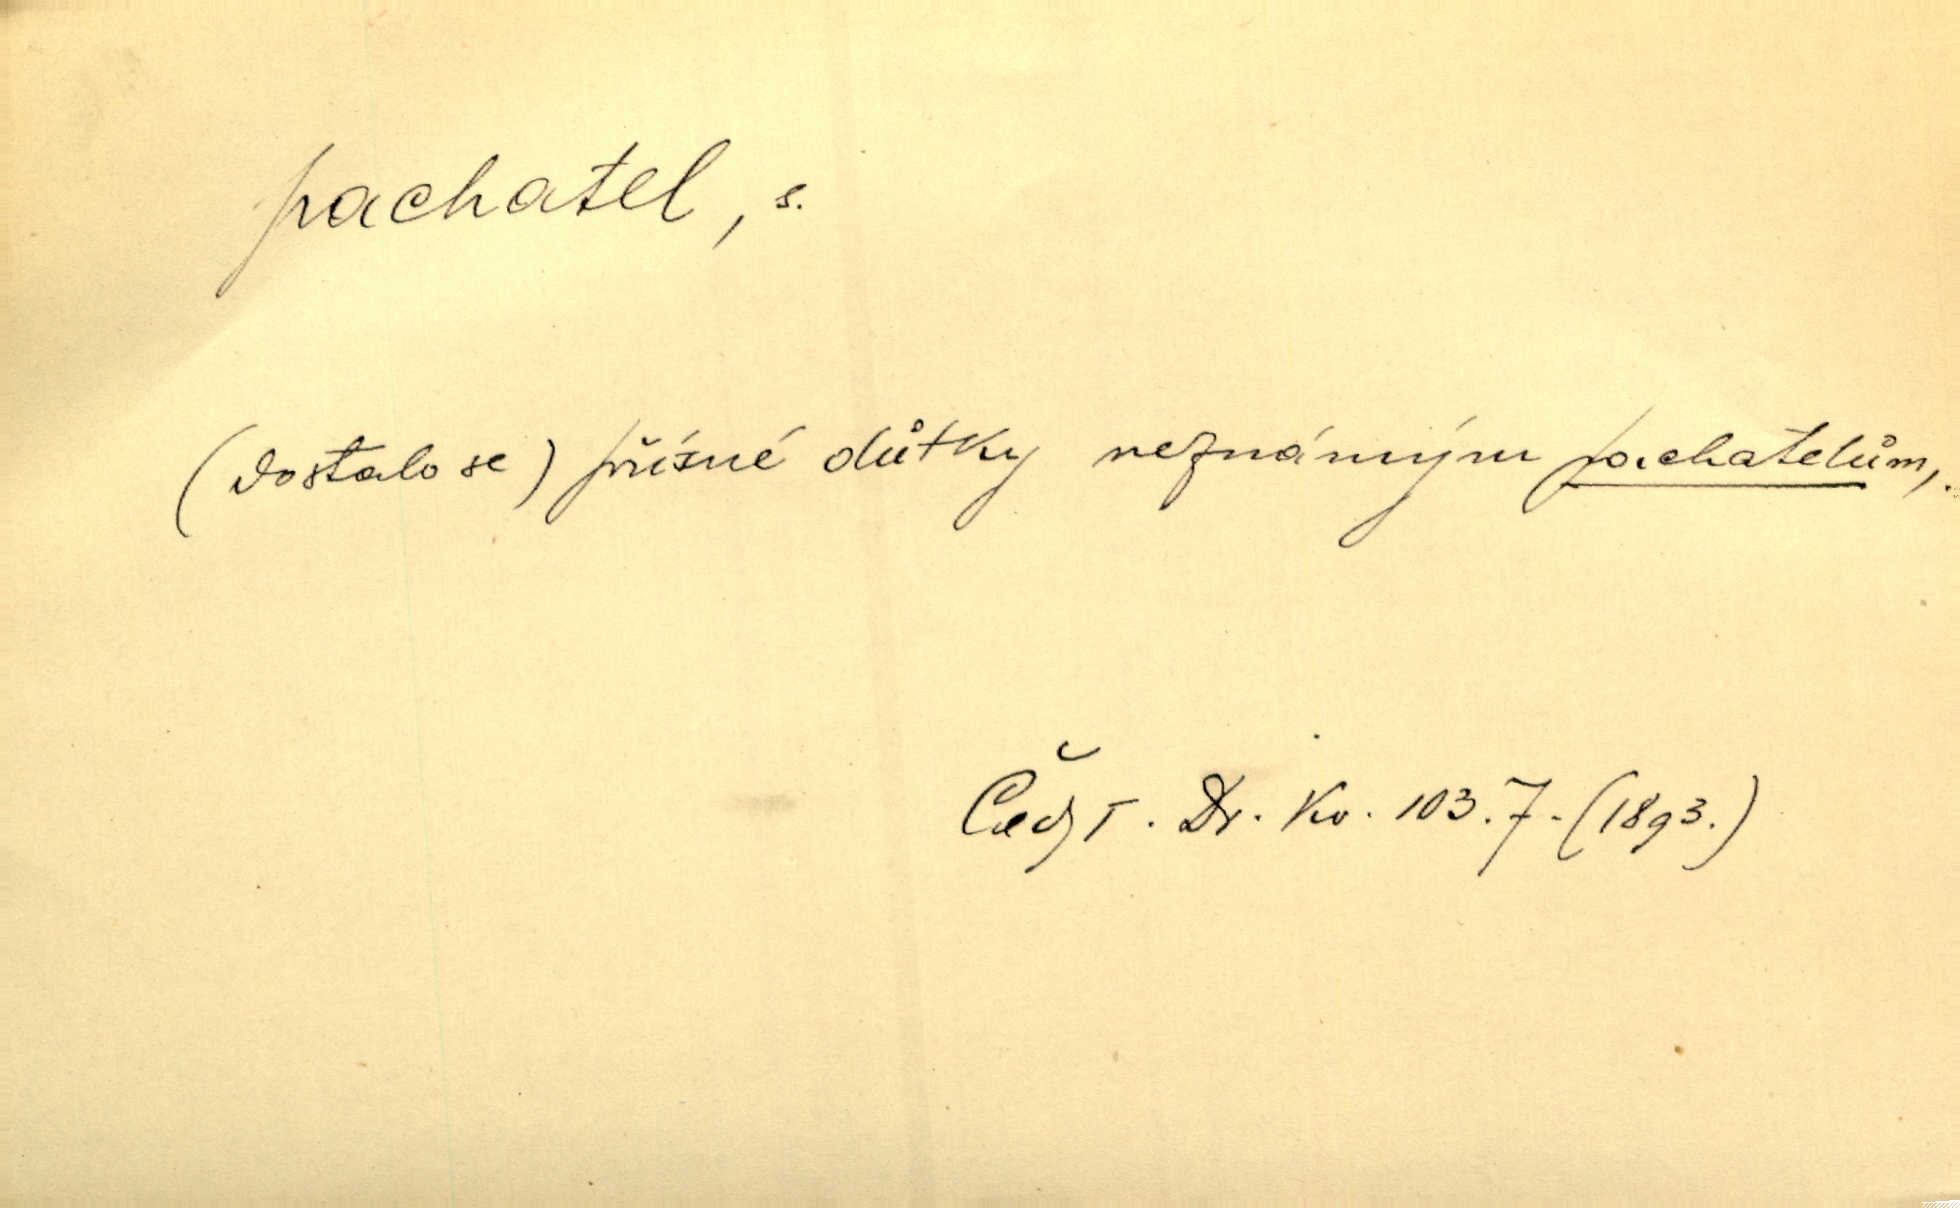 pachatel, s.
(dostalo se) přísné důtky neznámým pachatelům,.
Dr. Kv. 103.7. (1893.)